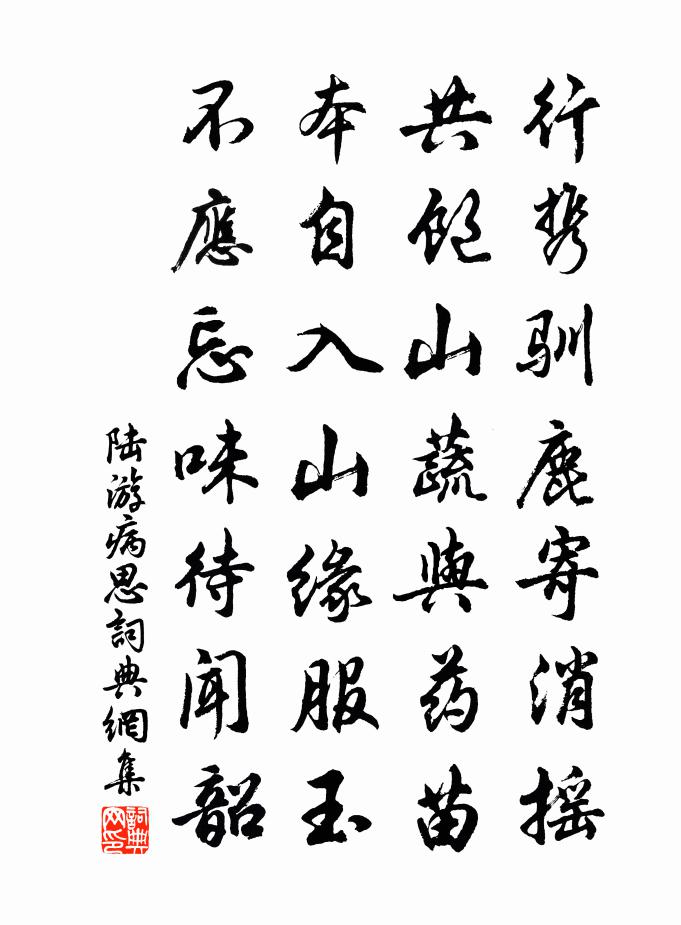 行携驯鹿寄消摇
共饱山蔬与药苗
本自入山缘服玉
不應忘味待闻韶
陆游病思詞典網集
詞典网印